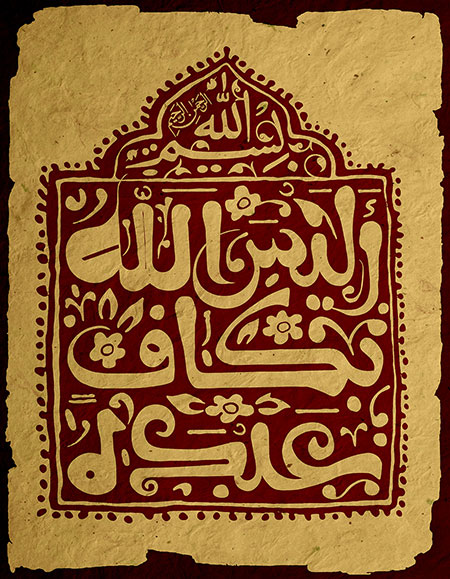 بسم الله الرحمن الرحيم
أليس الله
بكاف
عبده